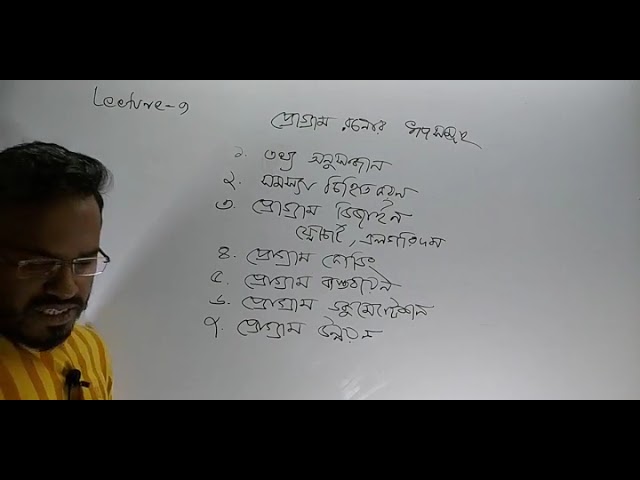 Lecture-9
প্রোগ্রাম রচনার ধাপসমূহ
১. তথ্য অনুসন্ধান
২. সমস্যা চিহ্নিতকরণ
৩. প্রোগ্রাম ডিজাইন
ফ্লোচার্ট, এলগরিদম
৪. প্রোগ্রাম কোডিং
৫. প্রোগ্রাম বাস্তবায়ন
৬. প্রোগ্রাম ডকুমেন্টেশন
৭. প্রোগ্রাম উন্নয়ন